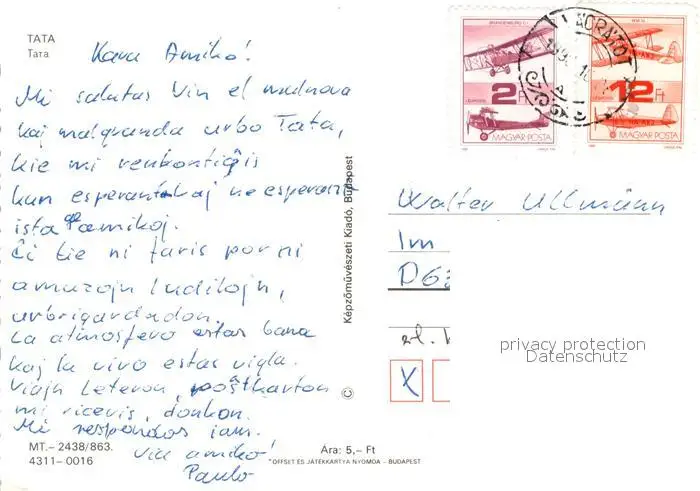 TATA
Tata
Kara Amiko!
Mi salutas Vin el malnova
kaj malgranda urbo Tata,
kie mi renkontiĝis
kun esperantaj kaj ne esperant
ista amikoj.
Ĉi tie ni faris por ni
amuzajn ludilojn,
urbrigardadon.
La atmosfero estas bona
kaj la vivo estas vigla.
Viajn leteron, poŝtkarton
mi ricevis, dankon.
Mi respondos iam.
via amiko!
Paulo
MT.– 2438/863.
4311–0016
Ára: 5,– Ft
"OFFSET ÉS JÁTÉKKÁRTYA NYOMDA - BUDAPEST
Képzőművészeti Kiadó, Budapest
©
BRANDENBURG C.I.
2 Ft
LÉGIPOSTA
MAGYAR POSTA
12 Ft
LÉGIPOSTA
HA-AKJ
MAGYAR POSTA
Walter Ullmann
Im
D63
X
privacy protection
Datenschutz